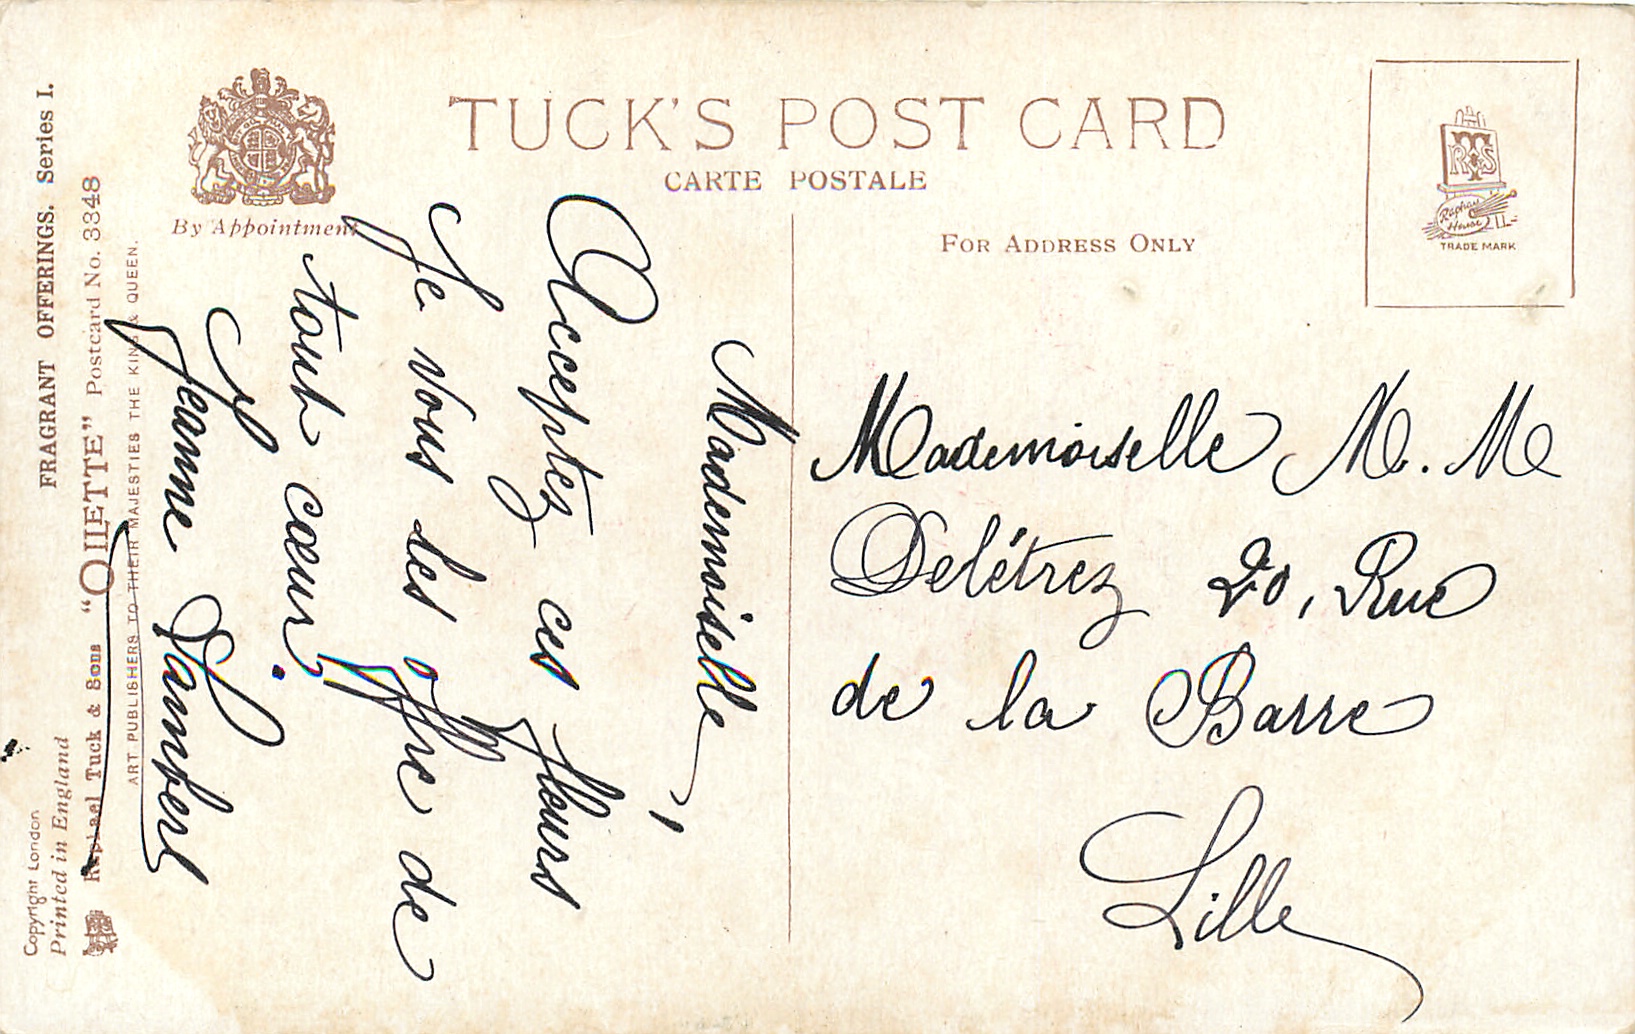 TUCK'S POST CARD
CARTE POSTALE
By Appointment
FOR ADDRESS ONLY
RTS
Raphael House
TRADE MARK
FRAGRANT OFFERINGS. Series I.
Copyright London
Printed in England
Raphael Tuck & Sons "OILETTE" Postcard No. 3348
ART PUBLISHERS TO THEIR MAJESTIES THE KING & QUEEN.
Mademoiselle,
Acceptez ces fleurs
Je vous les offre de
tout cœur.
Jeanne Lambert
Mademoiselle M. M
Delétrez 20, Rue
de la Barre
Lille